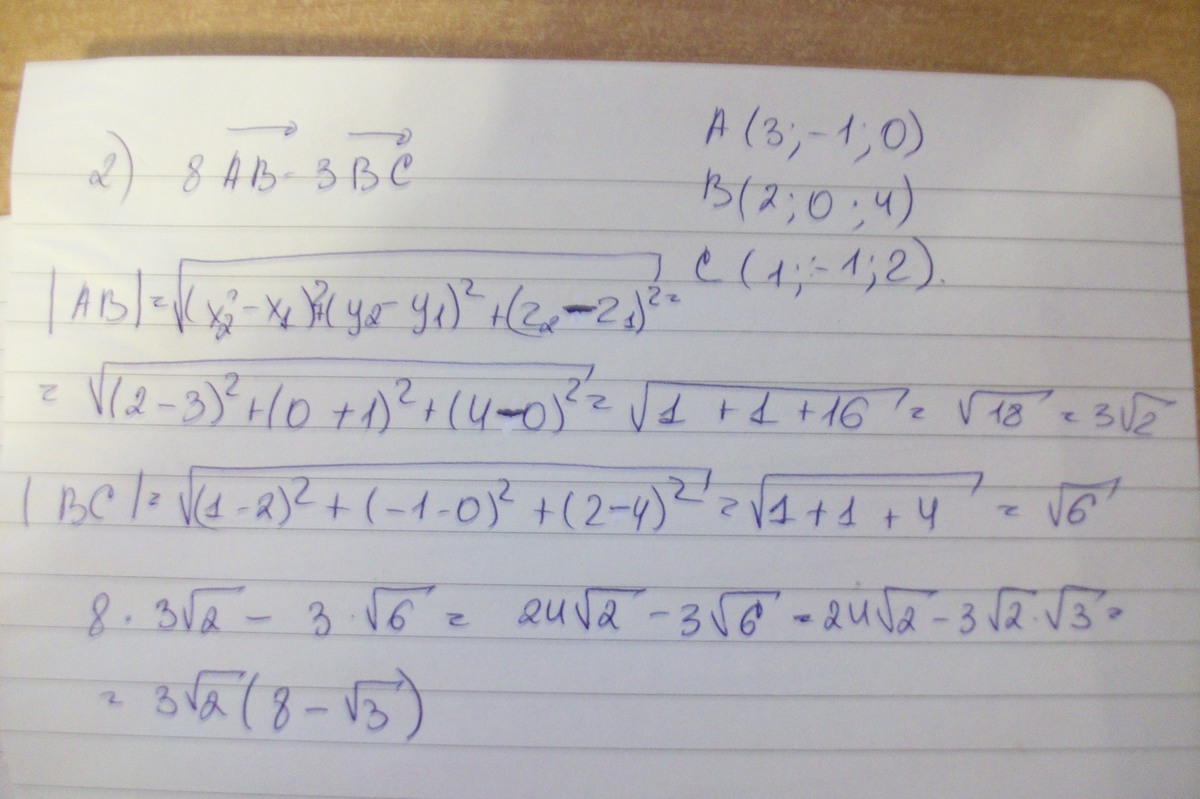 2) 8AB - 3BC
A (3; -1; 0)
B (2; 0; 4)
C (1; -1; 2).
|AB| = √(x₂ - x₁)² + (y₂ - y₁)² + (z₂ - z₁)² =
= √(2 - 3)² + (0 + 1)² + (4 - 0)² = √1 + 1 + 16 = √18 = 3√2
|BC| = √(1 - 2)² + (-1 - 0)² + (2 - 4)² = √1 + 1 + 4 = √6
8 · 3√2 - 3 · √6 = 24√2 - 3√6 = 24√2 - 3√2 · √3 =
= 3√2 (8 - √3)